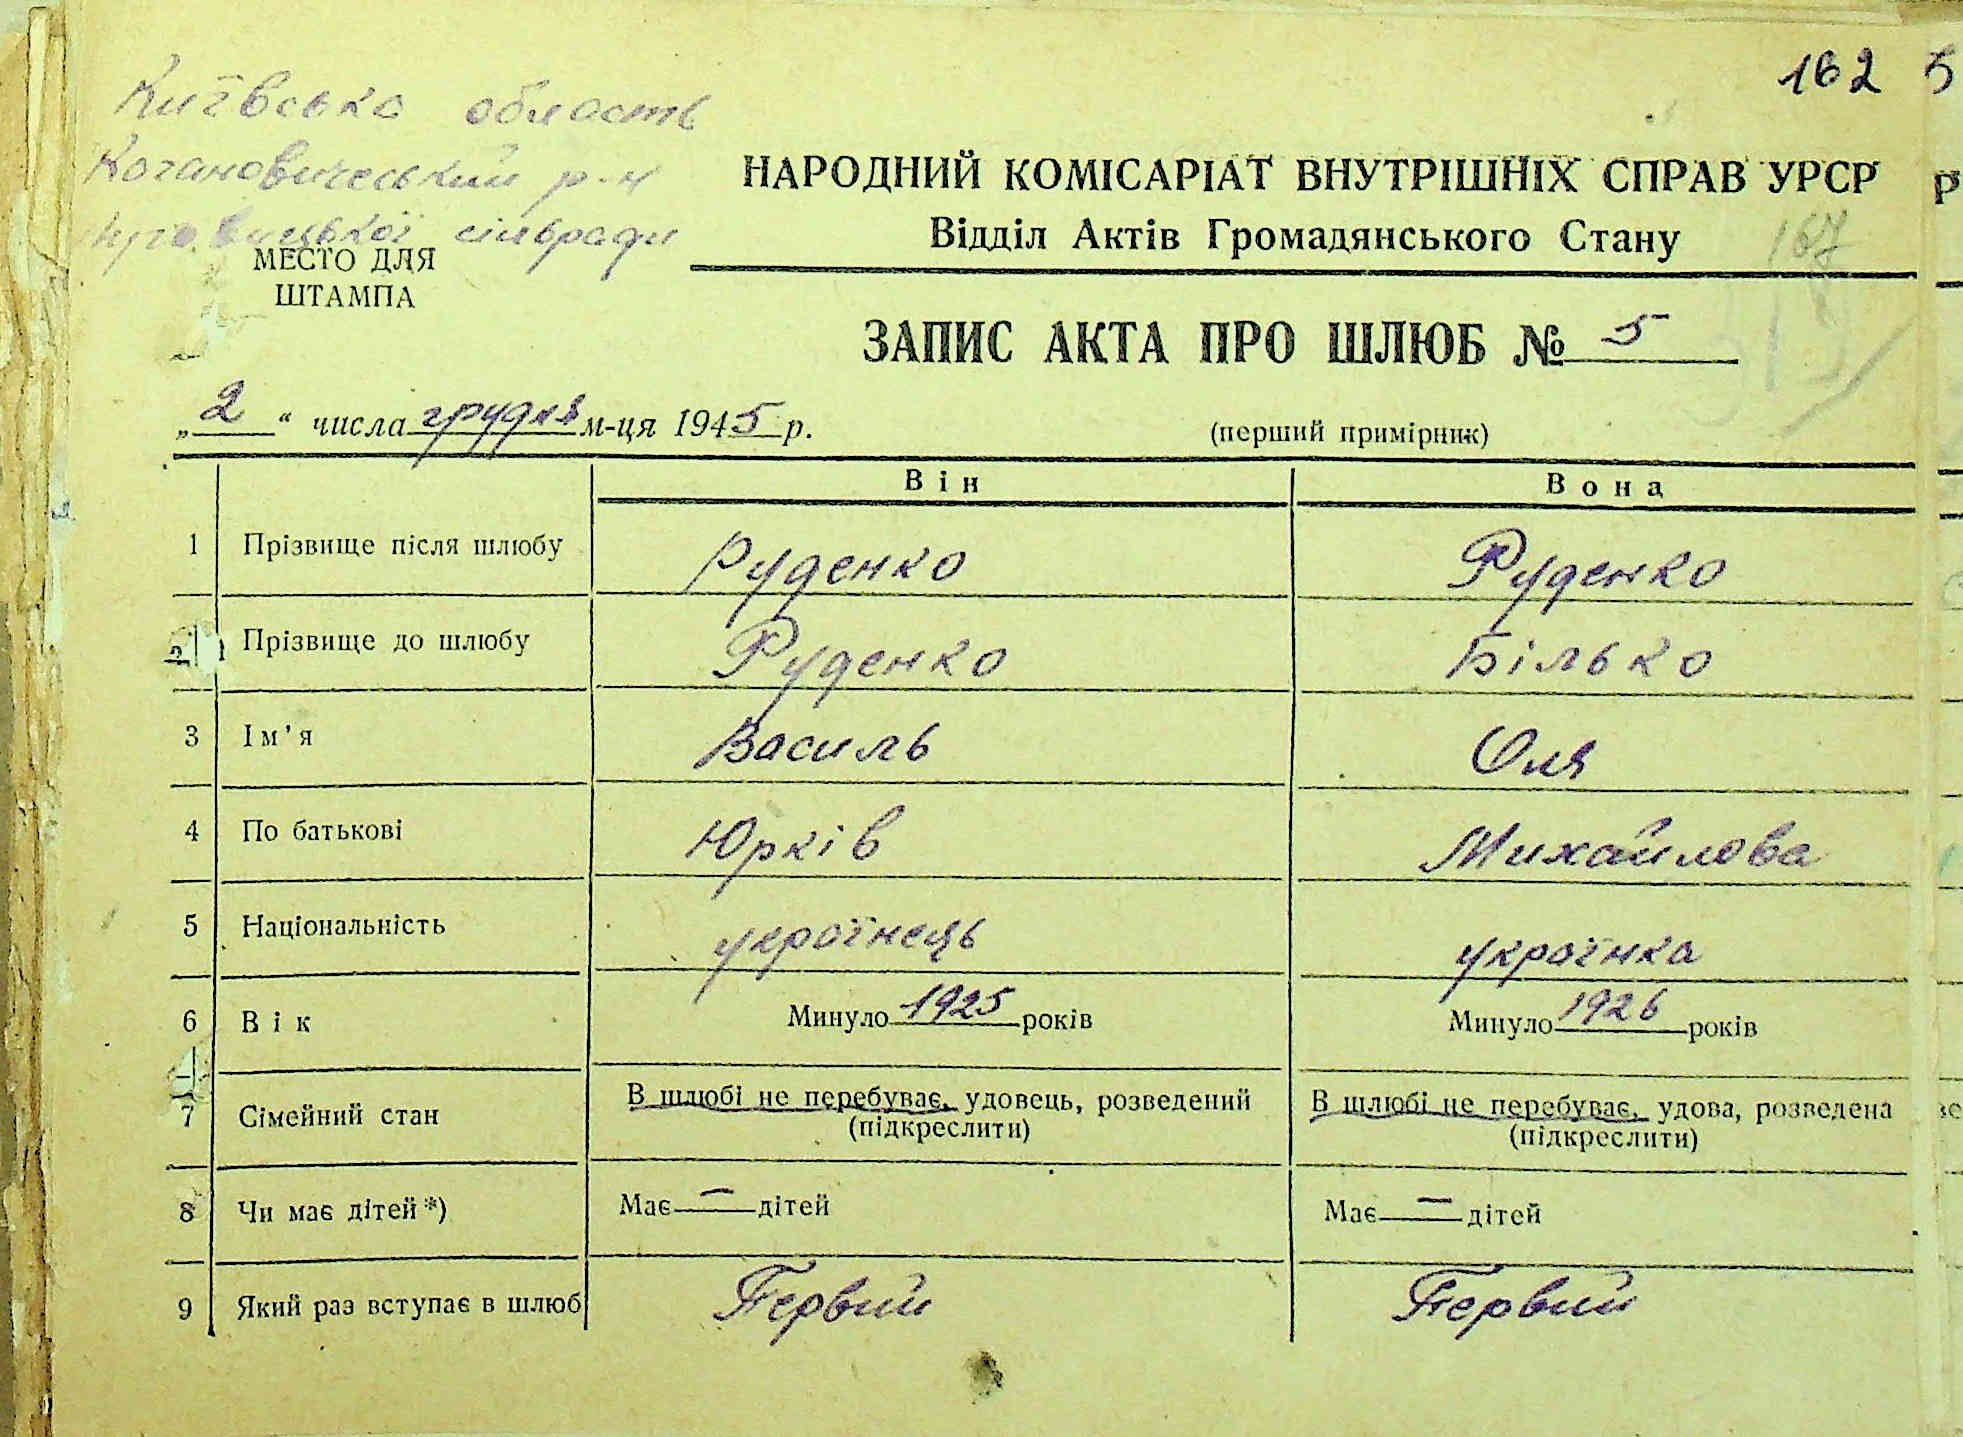 162
Київська область
Кагановичеський р-н
сільради
НАРОДНИЙ КОМІСАРІАТ ВНУТРІШНІХ СПРАВ УРСР
Відділ Актів Громадянського Стану
167
МЕСТО ДЛЯ
ШТАМПА
ЗАПИС АКТА ПРО ШЛЮБ № 5
„2“ числа грудня м-ця 1945 р.
(перший примірник)
Він Вона
1 Прізвище після шлюбу Руденко Руденко
2 Прізвище до шлюбу Руденко Білько
3 Ім'я Василь Оля
4 По батькові Юрків Михайлова
5 Національність українець українка
6 Вік Минуло 1925 років Минуло 1926 років
7 Сімейний стан В шлюбі не перебуває, удовець, розведений В шлюбі не перебуває, удова, розведена
(підкреслити) (підкреслити)
8 Чи має дітей*) Має — дітей Має — дітей
9 Який раз вступає в шлюб Первий Первий